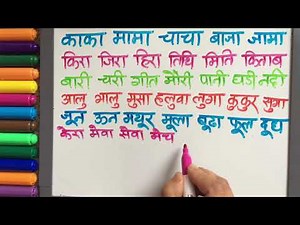 काका मामा चाचा बाजा जामा
किरा जिरा हिरा तिथि भिति किताब
बारी चरी गीत मौरी पानी घडी नदी
आलु भालु मुसा हलुवा लुगा कुकुर सुगा
भूत ऊन मयूर मूला बूढा फूल दूध
केरा मेवा सेवा मेच